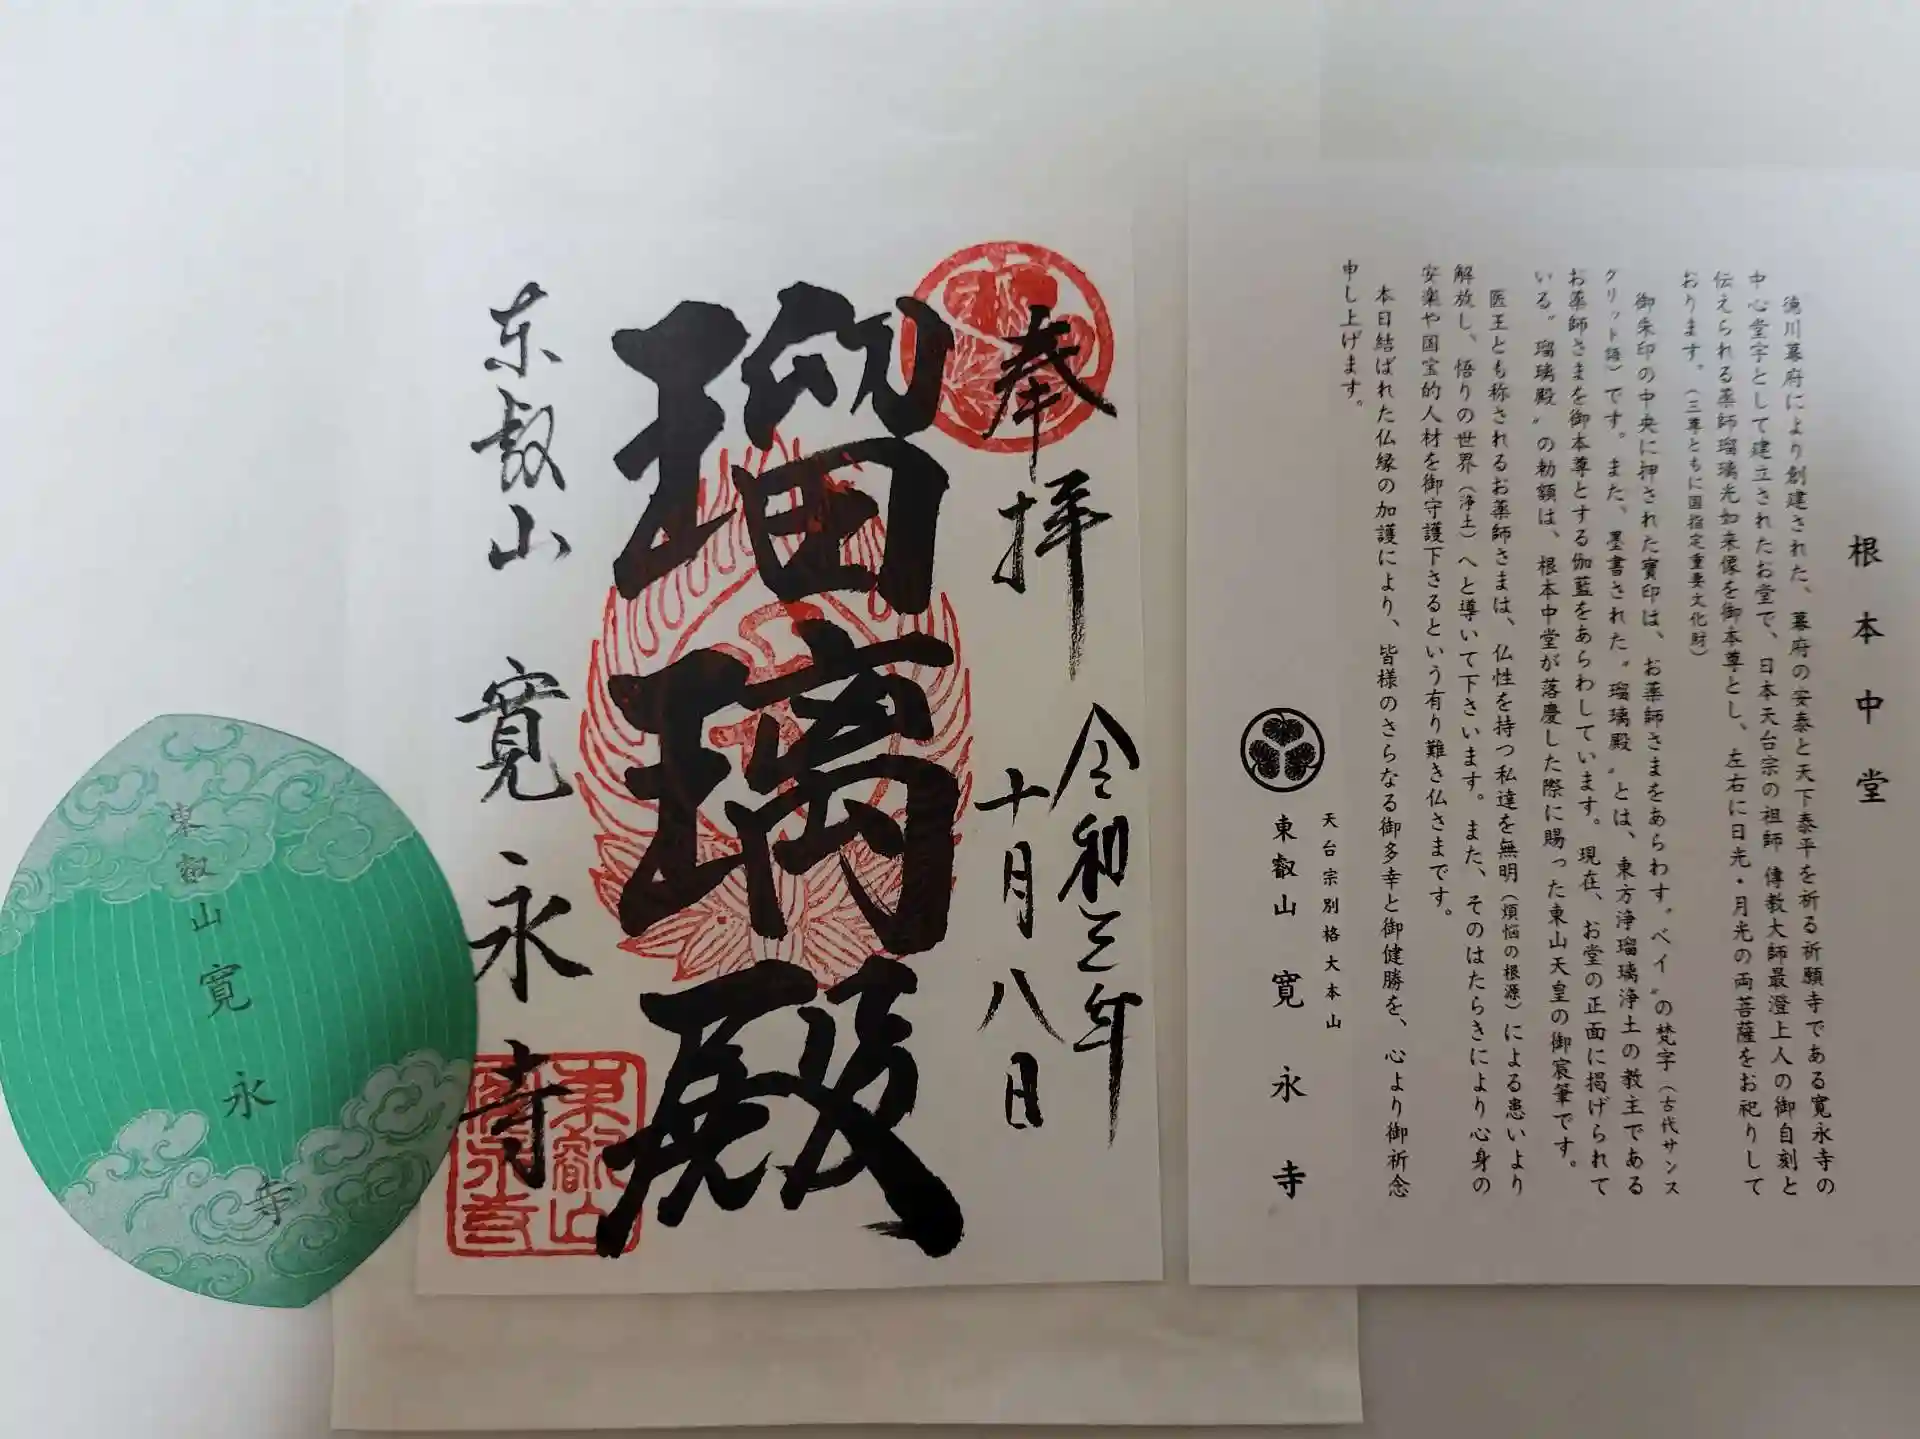 根本中堂
徳川幕府により創建された、幕府の安泰と天下泰平を祈る祈願寺である寛永寺の
中心堂宇として建立されたお堂で、日本天台宗の祖師 傳教大師最澄上人の御自刻と
伝えられる薬師瑠璃光如来像を御本尊とし、左右に日光・月光の両菩薩をお祀りして
おります。（三尊ともに国指定重要文化財）
御朱印の中央に押された寳印は、お薬師さまをあらわす〝ベイ〟の梵字（古代サンス
クリット語）です。また、墨書された〝瑠璃殿〟とは、東方浄瑠璃浄土の教主である
お薬師さまを御本尊とする伽藍をあらわしています。現在、お堂の正面に掲げられて
いる〝瑠璃殿〟の勅額は、根本中堂が落慶した際に賜った東山天皇の御宸筆です。
医王とも称されるお薬師さまは、仏性を持つ私達を無明（煩悩の根源）による患いより
解放し、悟りの世界（浄土）へと導いて下さいます。また、そのはたらきにより心身の
安楽や国宝的人材を御守護下さるという有り難き仏さまです。
本日結ばれた仏縁の加護により、皆様のさらなる御多幸と御健勝を、心より御祈念
申し上げます。
天台宗別格大本山
東叡山 寛永寺
奉拝
令和三年
十月八日
瑠璃殿
东叡山 寛永寺
東叡山
寛永寺
東叡山寛永寺